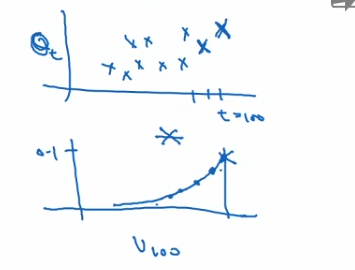 θt
t=100
0.1
V100